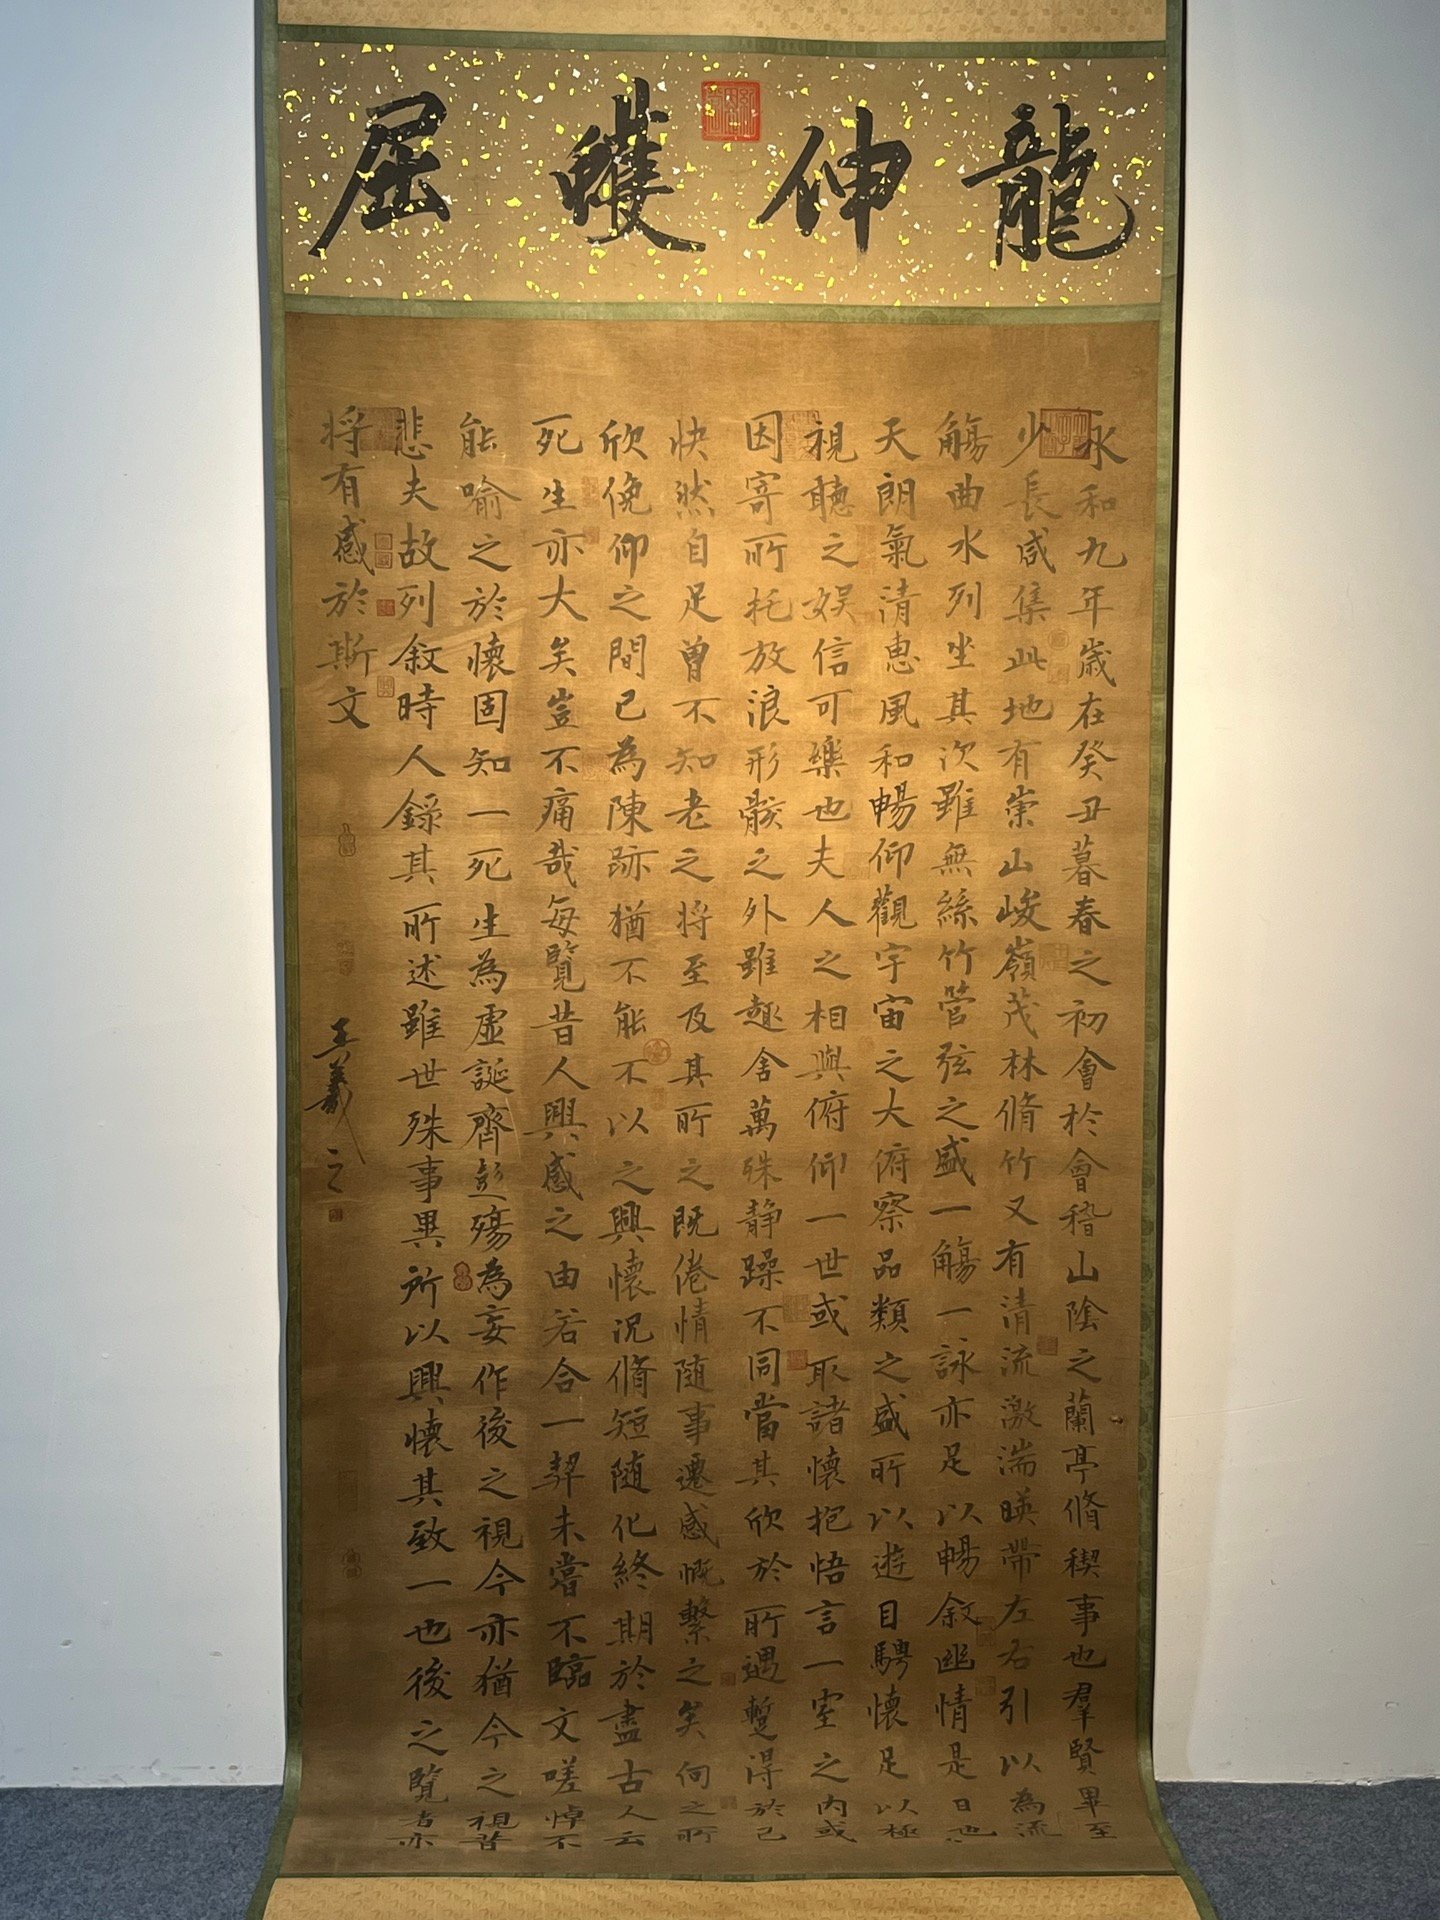 龍伸蠖屈
永和九年歲在癸丑暮春之初會於會稽山陰之蘭亭脩稧事也羣賢畢至
少長咸集此地有崇山峻嶺茂林脩竹又有清流激湍暎帶左右引以為流
觴曲水列坐其次雖無絲竹管弦之盛一觴一詠亦足以暢敘幽情是日也
天朗氣清惠風和暢仰觀宇宙之大俯察品類之盛所以遊目騁懷足以極
視聽之娛信可樂也夫人之相與俯仰一世或取諸懷抱悟言一室之内或
因寄所托放浪形骸之外雖趣舍萬殊静躁不同當其欣於所遇蹔得於己
快然自足曾不知老之将至及其所之既倦情随事遷感慨繫之矣向之所
欣俛仰之間已為陳跡猶不能不以之興懷況脩短随化終期於盡古人云
死生亦大矣豈不痛哉每覽昔人興感之由若合一契未嘗不臨文嗟悼不
能喻之於懷固知一死生為虛誕齊彭殤為妄作後之視今亦猶今之視昔
悲夫故列敘時人錄其所述雖世殊事異所以興懷其致一也後之覽者亦
将有感於斯文
王羲之